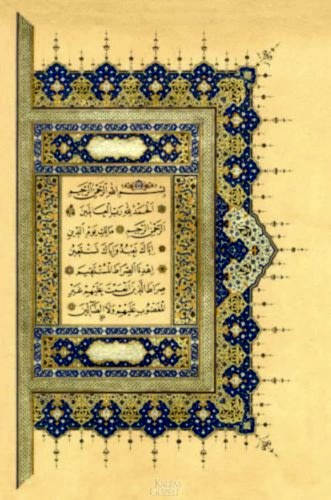 بسم الله الرحمن الرحيم
الحمد لله رب العالمين
الرحمن الرحيم مالك يوم الدين
اياك نعبد واياك نستعين
اهدنا الصراط المستقيم
صراط الذين انعمت عليهم غير
المغضوب عليهم ولا الضالين
KALEM GÜZELİ